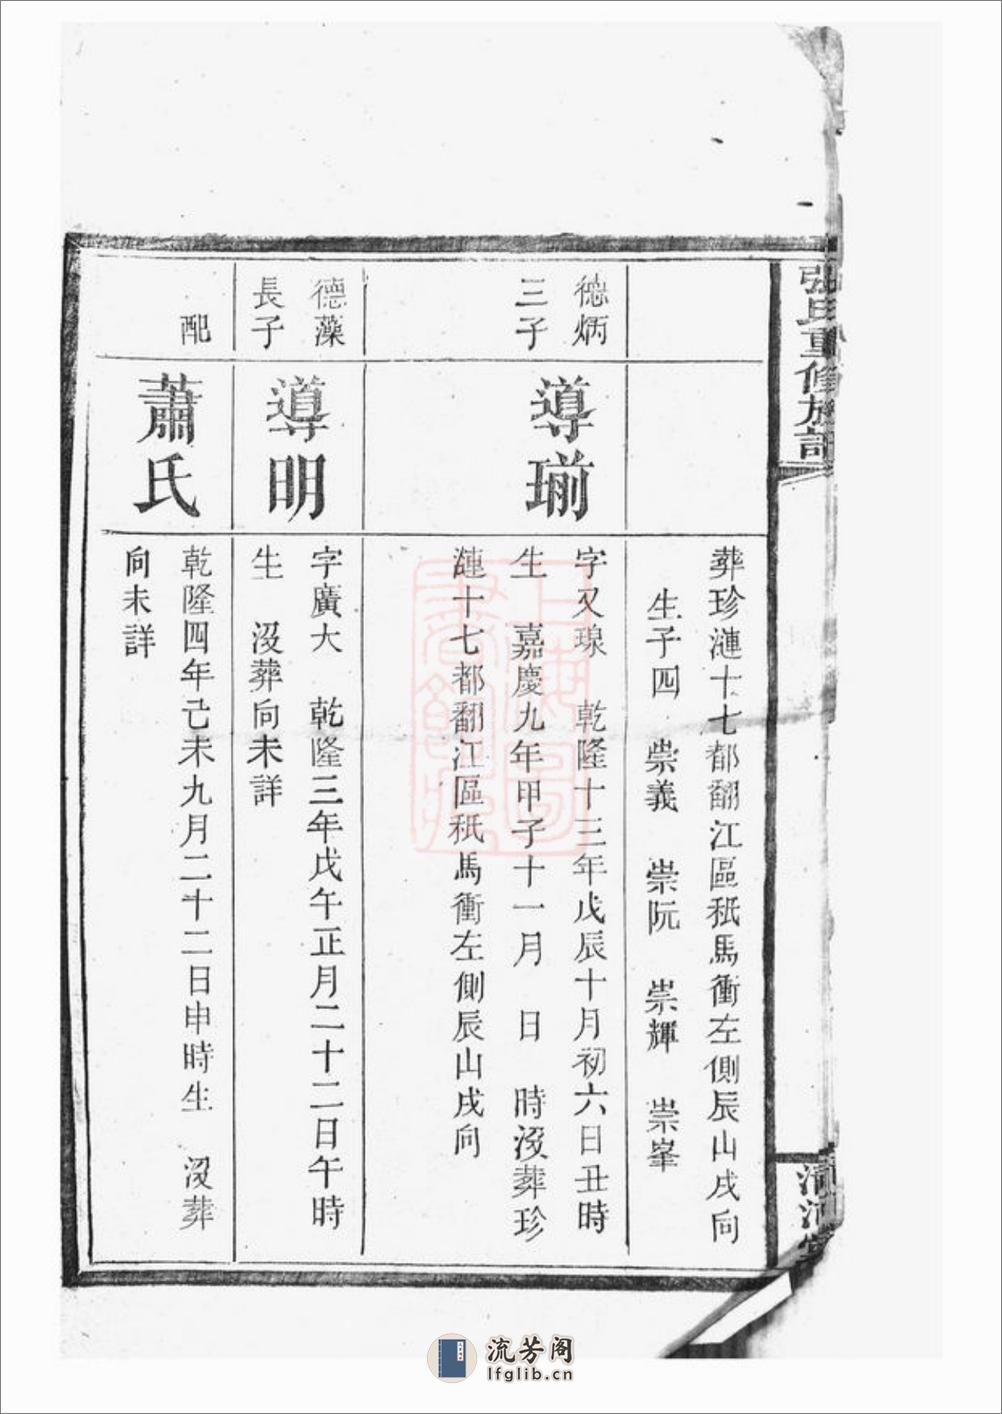 張氏重修族譜
清河堂
葬珍漣十七都翻江區秖馬衝左側辰山戌向
生子四 崇義 崇阮 崇輝 崇峯
德炳
三子
導瑐
字又琅 乾隆十三年戊辰十月初六日丑時
生 嘉慶九年甲子十一月 日 時沒葬珍
漣十七都翻江區秖馬衝左側辰山戌向
德藻
長子
導明
字廣大 乾隆三年戊午正月二十二日午時
生 沒葬向未詳
配
蕭氏
乾隆四年己未九月二十二日申時生 沒葬
向未詳
流芳阁
lfglib.cn